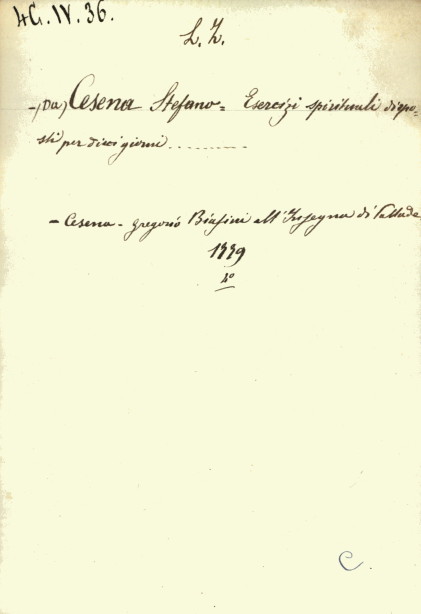 4G. IV. 36.
L. Z.
-(Da) Cesena Stefano = Esercizi spirituali dispo-
sti per dieci giorni ..........
- Cesena - gregorio Biasini all'Insegna di Pallade
1779
4º
C.